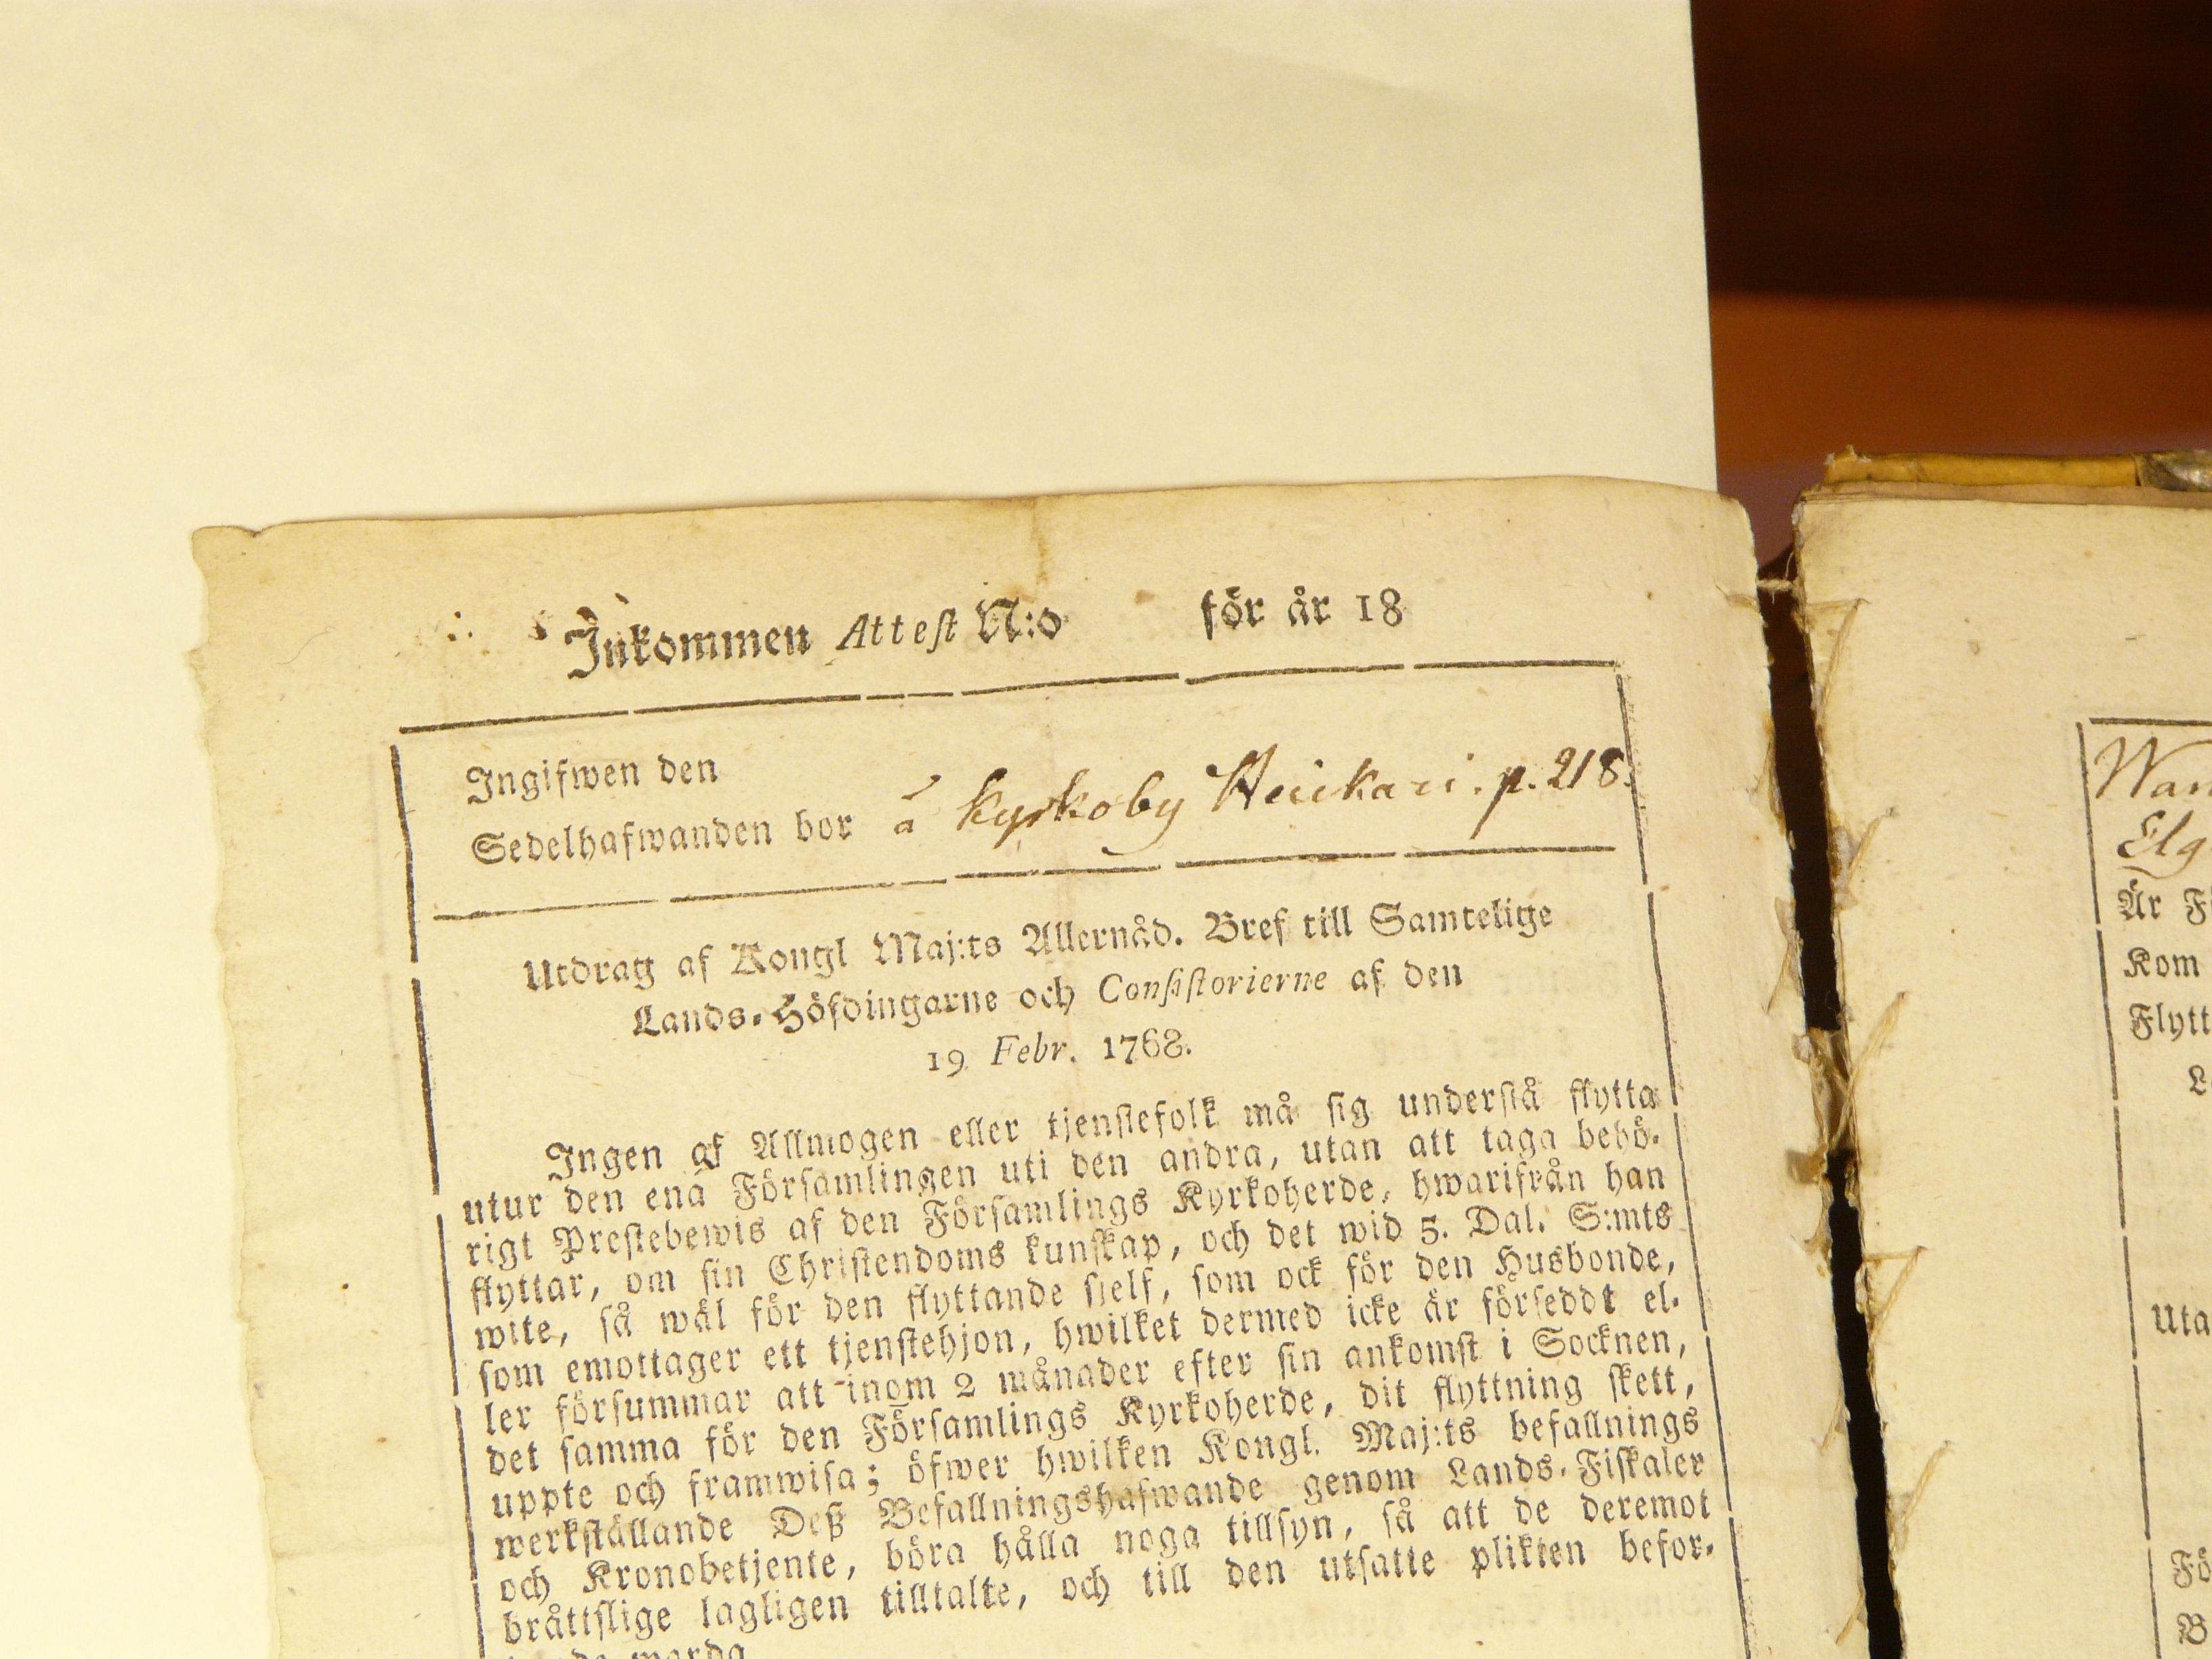 Inkommen Attest N:o för år 18
Ingifwen den
Sedelhafwanden bor å Kyrkoby Heickari. p. 218.
Utdrag af Kongl Maj:ts Allernåd. Bref till Samtelige
Lands-Höfdingarne och Consistorierne af den
19 Febr. 1768.
Ingen af Allmogen eller tjenstefolk må sig understå flytta
utur den ena Församlingen uti den andra, utan att taga behö-
rigt Prestebewis af den Församlings Kyrkoherde, hwarifrån han
flyttar, om sin Christendoms kunskap, och det wid 5. Dal. S:mts
wite, så wäl för den flyttande sjelf, som ock för den Husbonde,
som emottager ett tjenstehjon, hwilket dermed icke är förseddt el-
ler försummar att inom 2 månader efter sin ankomst i Socknen,
det samma för den Församlings Kyrkoherde, dit flyttning skett,
uppte och framwisa; öfwer hwilken Kongl. Maj:ts befallnings
werkställande Deß Befallningshafwande genom Lands-Fiskaler
och Kronobetjente, böra hålla noga tillsyn, så att de deremot
bråttslige lagligen tilltalte, och till den utsatte plikten befor-
warda
Wan
Elg
Är F
Kom
Flytt
L
Uta
Fö
B